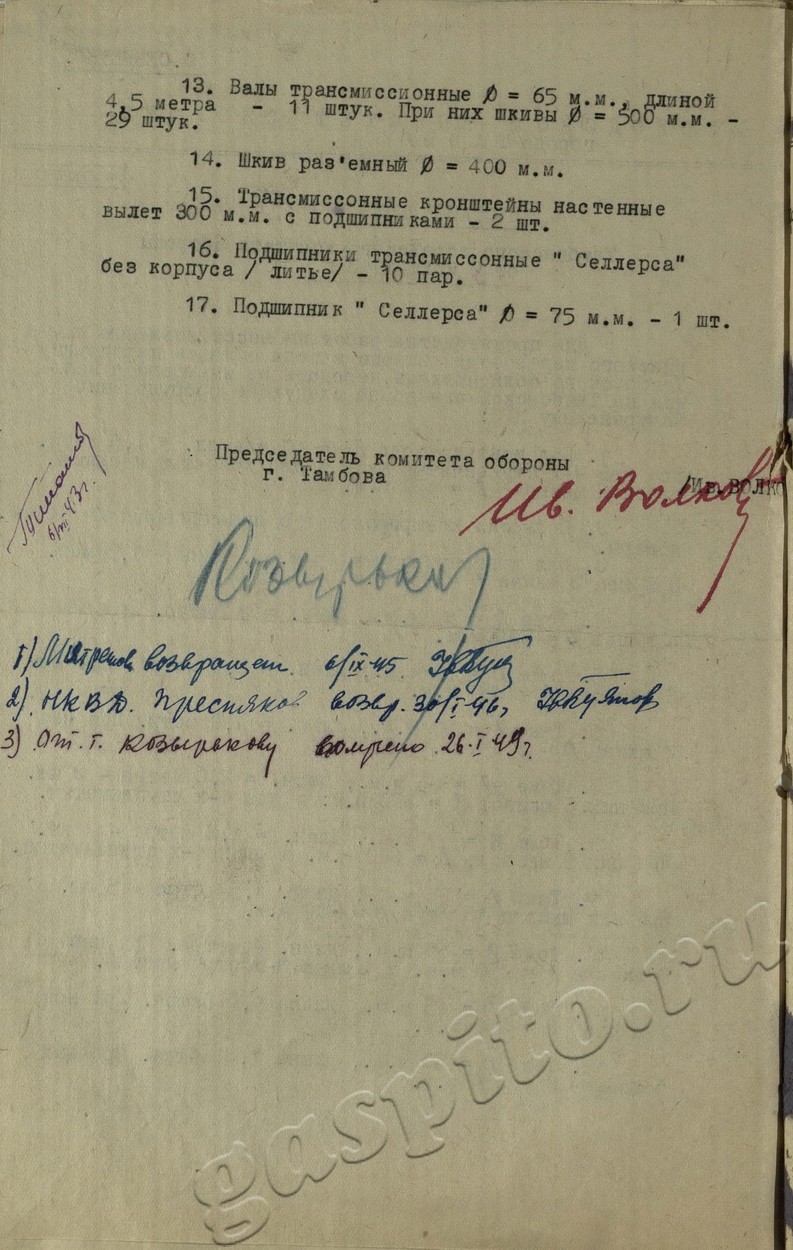 13. Валы трансмиссионные ∅ = 65 м.м., длиной
4,5 метра - 11 штук. При них шкивы ∅ = 500 м.м. -
29 штук.
14. Шкив раз'емный ∅ = 400 м.м.
15. Трансмиссонные кронштейны настенные
вылет 300 м.м. с подшипниками - 2 шт.
16. Подшипники трансмиссонные " Селлерса"
без корпуса / литье/ - 10 пар.
17. Подшипник " Селлерса" ∅ = 75 м.м. - 1 шт.
Председатель комитета обороны
г. Тамбова
Ив. Волков
1) возвращен 6/IX-45
2) НКВД. Пресняков возвр. 30/I-46г
3) От. т. Козырькову 26.I 49г.
gaspito.ru